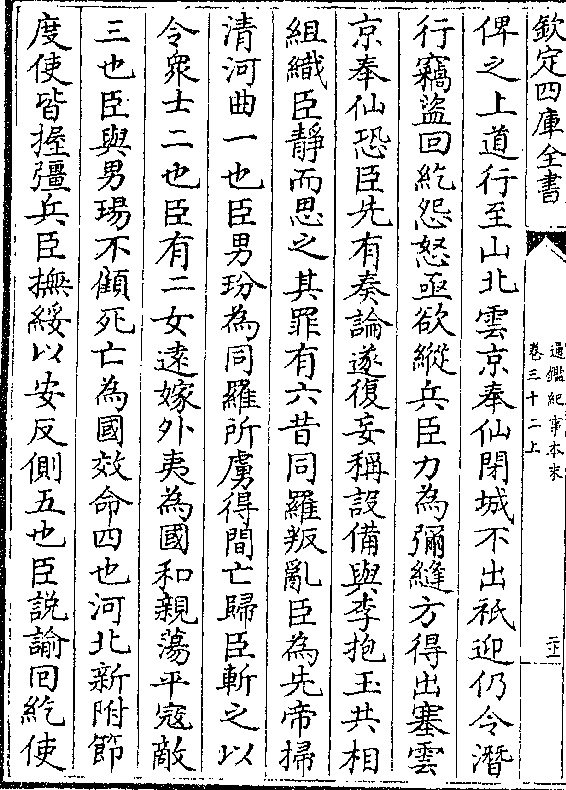 欽定四庫全書
通鑑紀事本末
卷三十二上
俾之上道行至山北雲京奉仙閉城不出祗迎仍令潛
行竊盜回紇怨怒亟欲縱兵臣力為彌縫方得出塞雲
京奉仙恐臣先有奏論遂復妄稱設備與李抱玉共相
組織臣靜而思之其罪有六昔同羅叛亂臣為先帝掃
清河曲一也臣男玢為同羅所虜得間亡歸臣斬之以
令衆士二也臣有二女逺嫁外夷為國和親蕩平寇敵
三也臣與男瑒不顧死亡為國效命四也河北新附節
度使皆握彊兵臣撫綏以安反側五也臣説諭回紇使